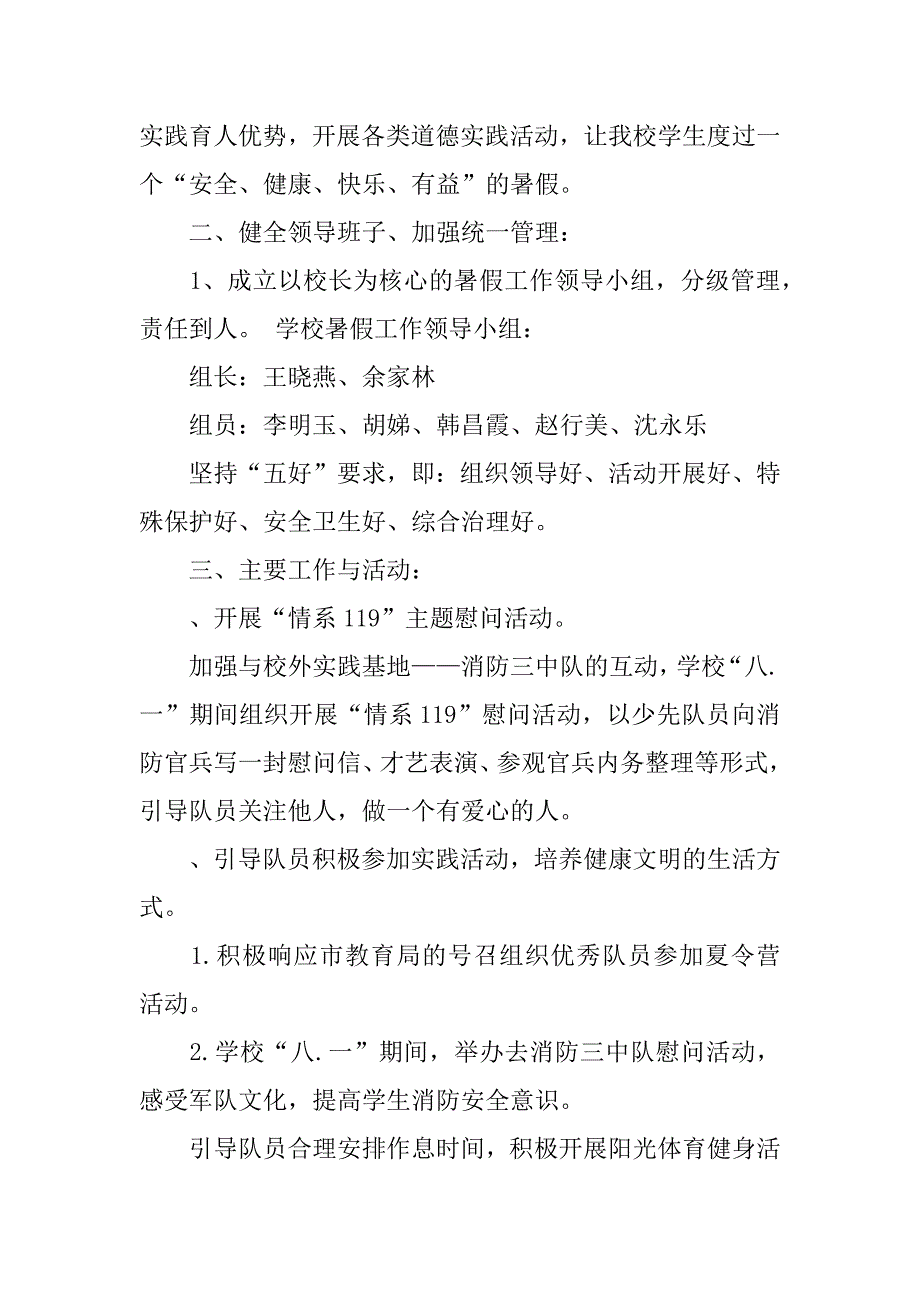 实践育人优势，开展各类道德实践活动，让我校学生度过一
个“安全、健康、快乐、有益”的暑假。
二、健全领导班子、加强统一管理：
1、成立以校长为核心的暑假工作领导小组，分级管理，
责任到人。 学校暑假工作领导小组：
组长：王晓燕、余家林
组员：李明玉、胡娣、韩昌霞、赵行美、沈永乐
坚持“五好”要求，即：组织领导好、活动开展好、特
殊保护好、安全卫生好、综合治理好。
三、主要工作与活动：
、开展“情系 119”主题慰问活动。
加强与校外实践基地——消防三中队的互动，学校“八.
一”期间组织开展“情系 119”慰问活动，以少先队员向消
防官兵写一封慰问信、才艺表演、参观官兵内务整理等形式，
引导队员关注他人，做一个有爱心的人。
、引导队员积极参加实践活动，培养健康文明的生活方
式。
1.积极响应市教育局的号召组织优秀队员参加夏令营
活动。
2.学校“八.一”期间，举办去消防三中队慰问活动，
感受军队文化，提高学生消防安全意识。
引导队员合理安排作息时间，积极开展阳光体育健身活